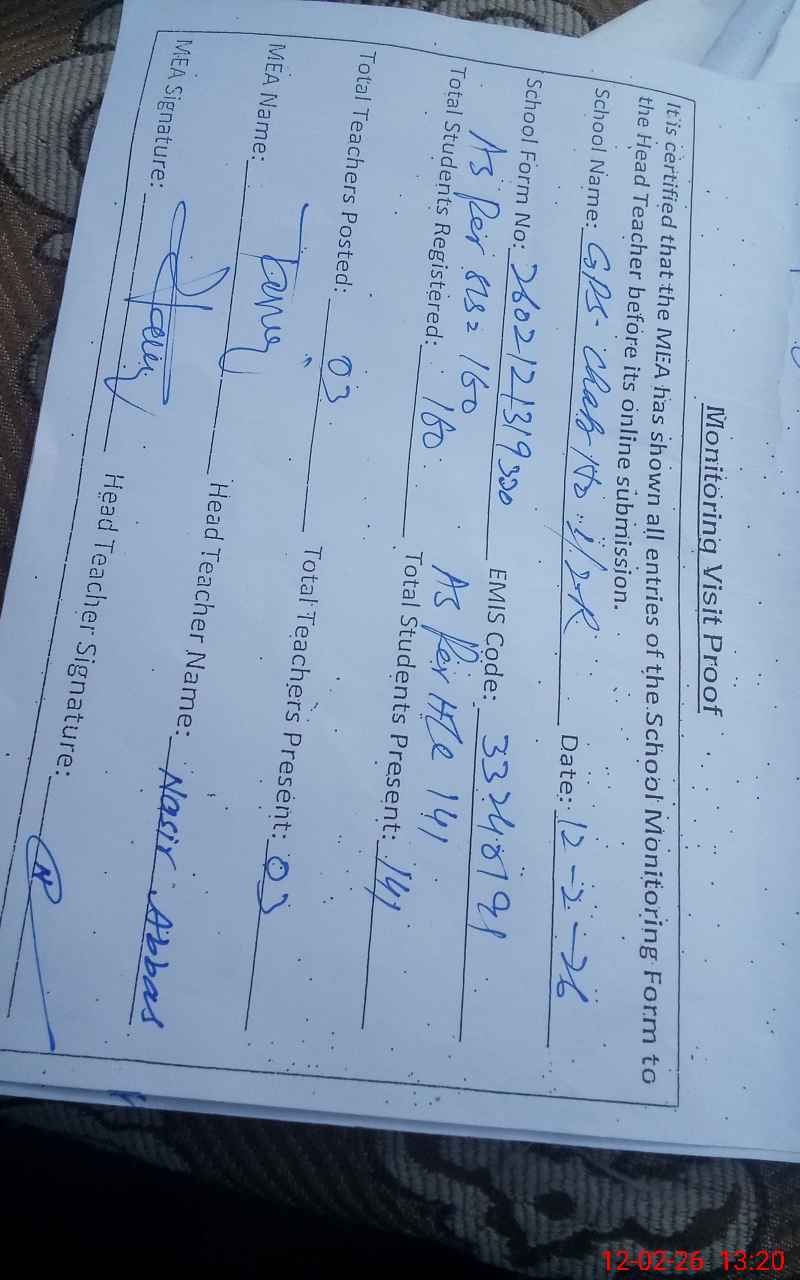 Monitoring Visit Proof
It is certified that the MEA has shown all entries of the School Monitoring Form to
the Head Teacher before its online submission.
School Name: GPS. Chak No 1/2-R Date: 12-2-26
School Form No: EMIS Code:
As Per SIS= 160 As Per H/C 141
Total Students Registered: 160 Total Students Present: 141
Total Teachers Posted: 03 Total Teachers Present: 03
MEA Name: Head Teacher Name: Nasir Abbas
MEA Signature: Head Teacher Signature:
12-02-26 13:20